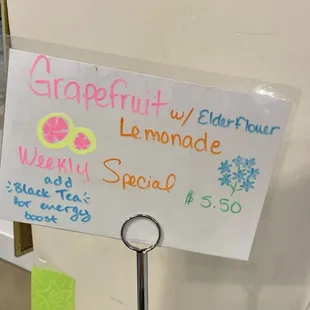 Grapefruit w/ Elderflower
Lemonade
Weekly Special
add
Black Tea
for energy
boost
$5.50